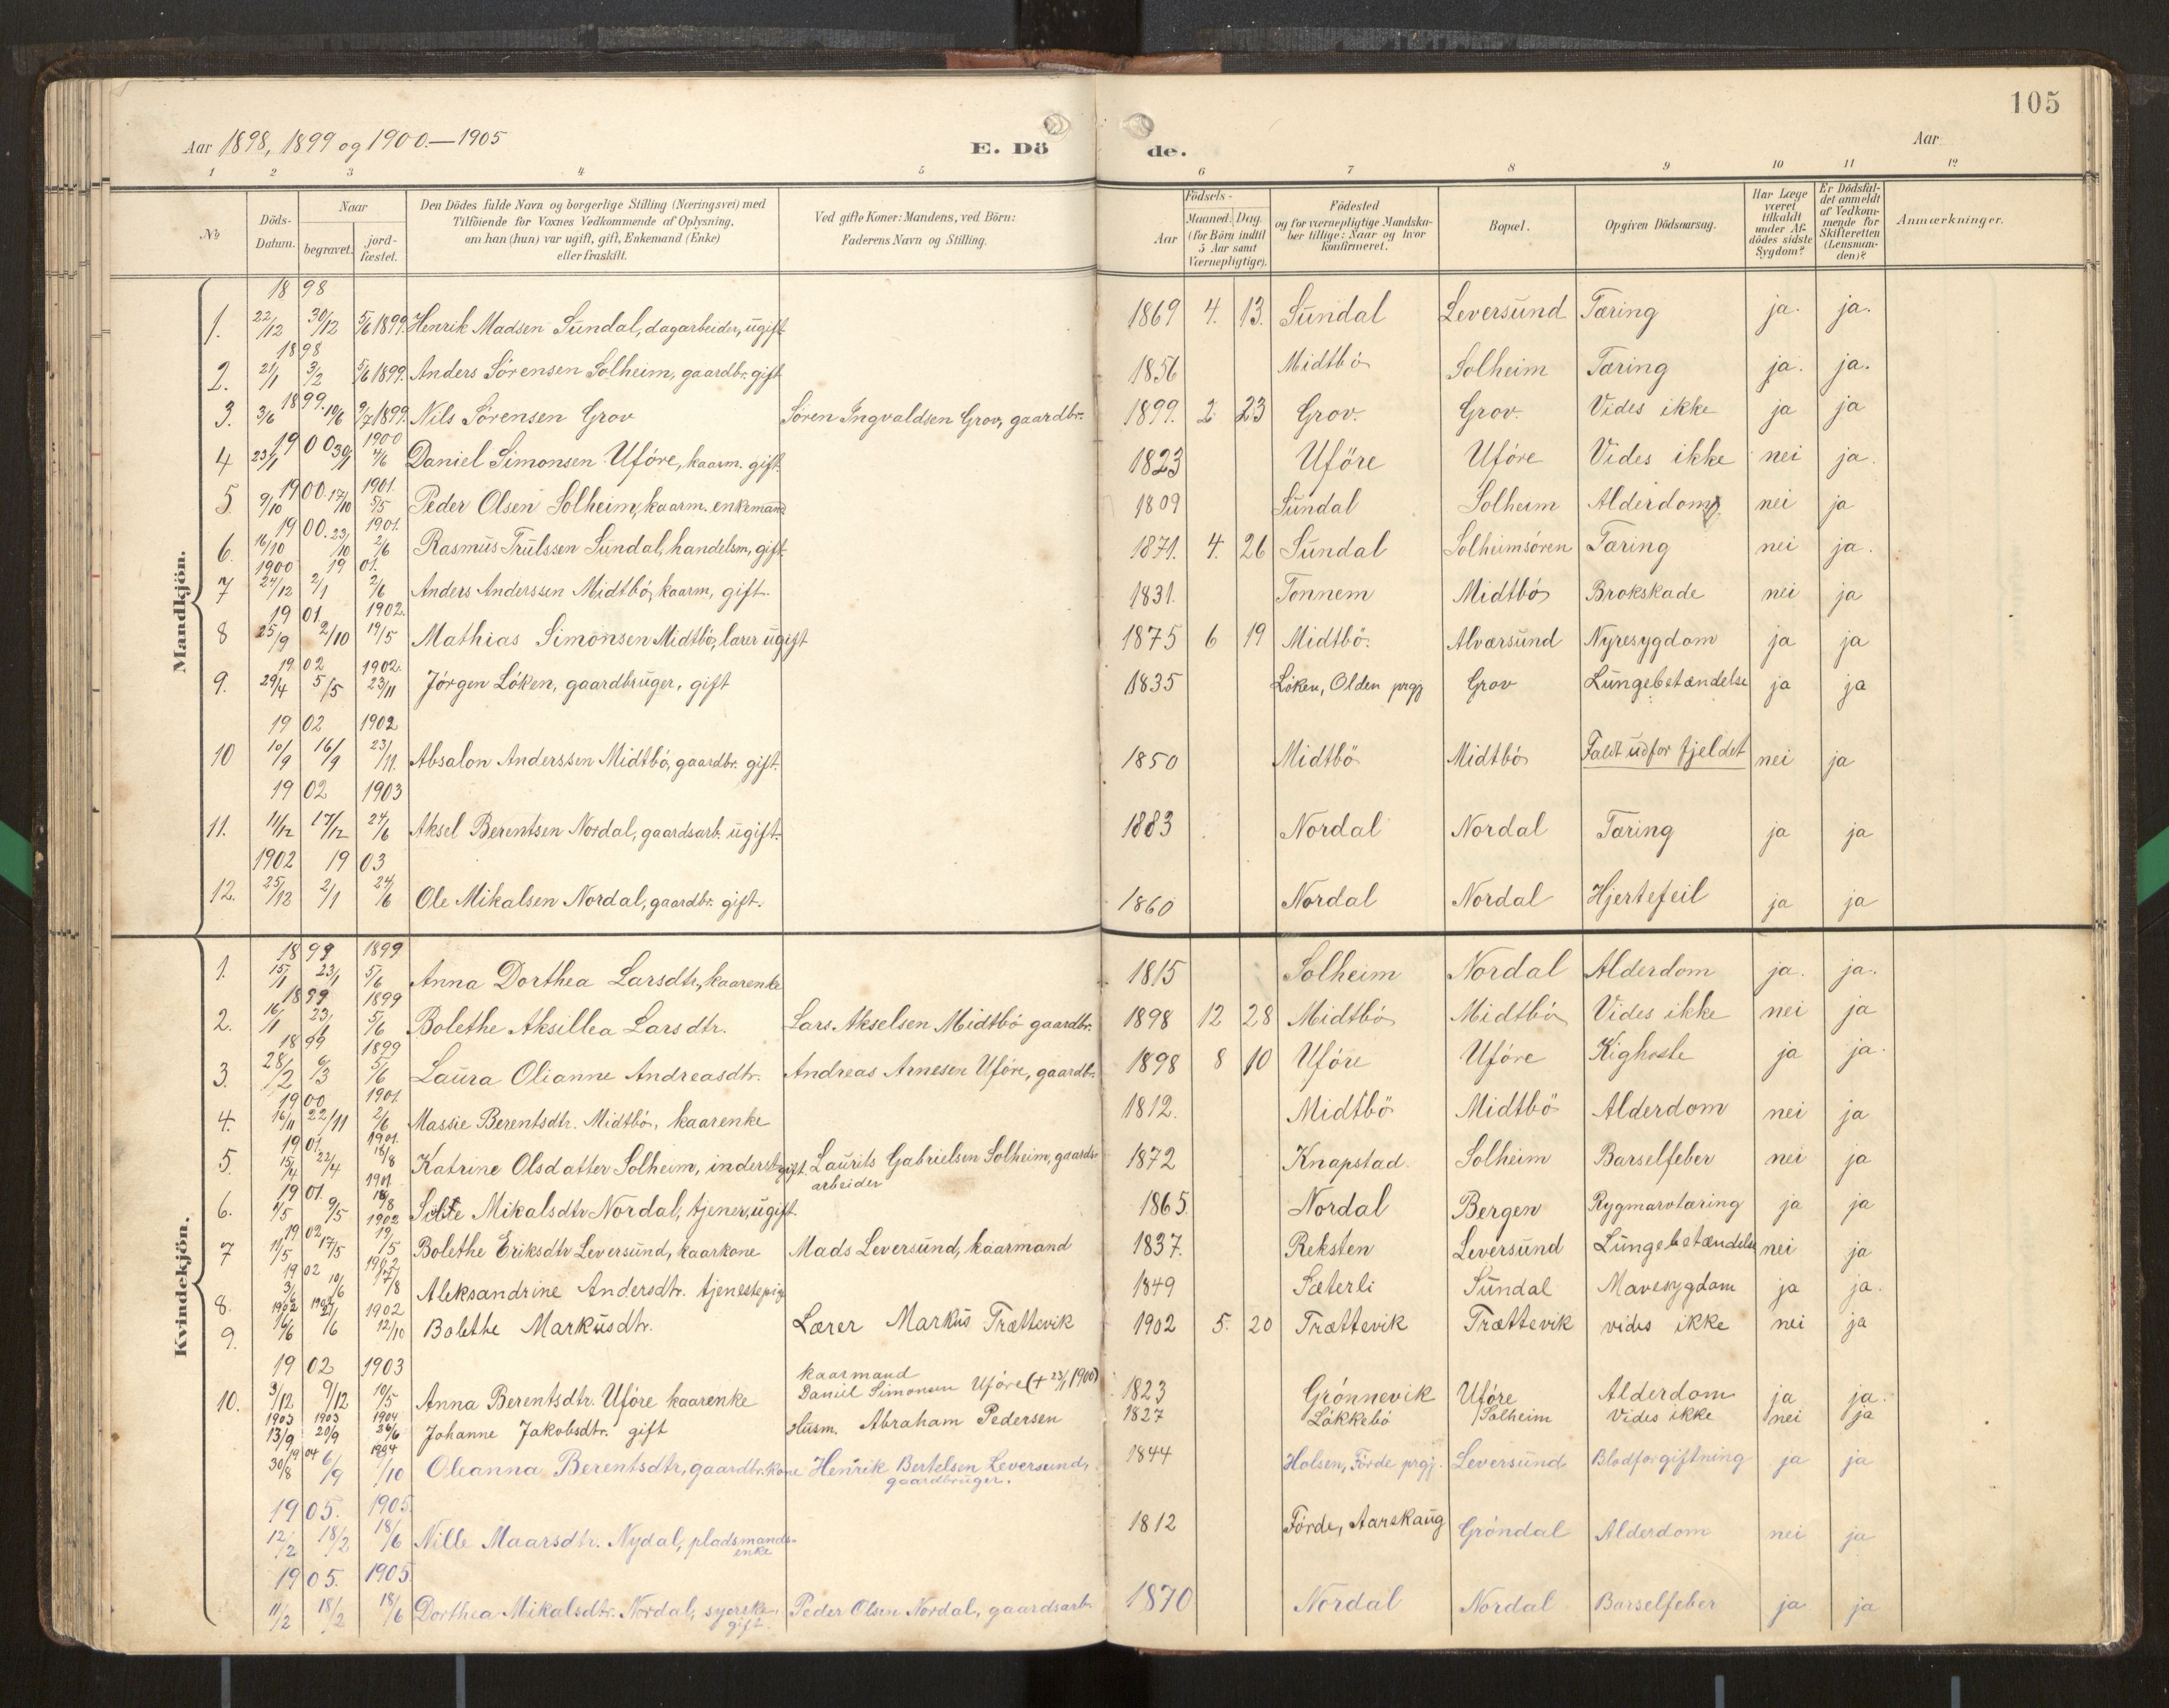 105
Aar 1898, 1899 og 1900.—1905
E. Dö de.
Aar
1 2 3 4 5 6 7 8 9 10 11 12
№ Döds-Datum. Naar begravet. jord-fæstet. Den Dödes fulde Navn og borgerlige Stilling (Næringsvei) med Tilföiende for Voxnes Vedkommende af Oplysning, om han (hun) var ugift, gift, Enkemand (Enke) eller fraskilt. Ved gifte Koner: Mandens, ved Börn: Faderens Navn og Stilling. Aar Födsels- Maaned. Dag. (for Börn indtil 5 Aar samt Værnepligtige). Födested og for værnepligtige Mandskaber tillige: Naar og hvor konfirmeret. Bopæl. Opgiven Dödsaarsag. Har Læge været tilkaldt under Afdödes sidste Sygdom? Er Dödsfaldet anmeldt af Vedkommende for Skifteretten (Lensmanden)? Anmærkninger.
Mandkjön.
1898
1. 22/12 30/12 5/6 1899. Henrik Madsen Sundal, dagarbeider, ugift 1869 4. 13. Sundal Leversund Tæring ja. ja.
1898
2. 21/1 3/2 5/6 1899. Anders Sörensen Solheim, gaardbr. gift 1856 Midtbö Solheim Tæring ja. ja.
1899.
3. 3/6 10/6 9/7 1899. Nils Sörensen Grov Sören Ingvaldsen Grov, gaardbr. 1899. 2. 23 Grov. Grov. Vides ikke ja ja
1900 1900
4 23/1 30/1 4/6 Daniel Simonsen Uföre, kaarm. gift. 1823 Uföre Uföre Vides ikke nei ja.
1900. 1901.
5 9/10 17/10 5/5 Peder Olsen Solheim, kaarm. enkemand 1809 Sundal Solheim Alderdom nei ja
1900. 1901.
6. 16/10 23/10 2/6 Rasmus Trulssen Sundal, handelsm, gift 1871. 4. 26 Sundal Solheimsören Tæring nei ja.
1900 1901.
7 24/12 2/1 2/6 Anders Anderssen Midtbö, kaarm, gift. 1831. Tonnem Midtbö Brokskade nei ja
1901 1902.
8 25/9 2/10 19/5 Mathias Simonsen Midtbö, lærer ugift 1875 6 19 Midtbö. Alversund Nyresygdom ja ja
1902 1902.
9. 29/4 5/5 23/11 Jörgen Löken, gaardbruger, gift 1835 Löken, Olden prgj Grov Lungebetændelse ja ja
1902 1902
10 10/9 16/9 23/11. Absalon Anderssen Midtbö, gaardbr. gift. 1850 Midtbö Midtbö Faldt udfor fjeldet nei ja
1902 1903
11. 11/12 17/12 24/6 Aksel Berentsen Nordal, gaardsarb. ugift. 1883 Nordal Nordal Tæring ja ja
1902 1903
12. 25/12 2/1 24/6 Ole Mikalsen Nordal, gaardbr. gift. 1860 Nordal Nordal Hjertefeil ja ja
Kvindekjön.
1899 1899
1. 15/1 23/1 5/6 Anna Dorthea Larsdtr., kaarenke 1815 Solheim Nordal Alderdom ja. ja.
1899 1899
2. 16/1 23/1 5/6 Bolethe Aksillea Larsdtr. Lars Akselsen Midtbö gaardbr. 1898 12 28 Midtbö Midtbö Vides ikke nei ja
1899 1899
3. 28/2 6/3 5/6 Laura Olianne Andreasdtr. Andreas Arnesen Uföre, gaardbr. 1898 8 10 Uföre Uföre Kighoste ja ja.
1900 1901.
4. 16/11 22/11 2/6 Massie Berentsdtr. Midtbö, kaarenke 1812. Midtbö Midtbö Alderdom nei ja
1901. 1901.
5. 15/4 22/4 18/8 Katrine Olsdatter Solheim, inderst gift. Laurits Gabrielsen Solheim, gaards-
arbeider 1872 Knapstad. Solheim Barselfeber nei ja
1901. 1901
6. 1/5 9/5 18/8 Mikalsdtr Nordal, tjener, ugift. 1865. Nordal Bergen Rygmarvtæring ja ja
1902 1902
7 11/5 17/5 19/5 Bolethe Eriksdtr Leversund, kaarkone Mads Leversund, kaarmand 1837. Reksten Leversund Lungebetændelse nei ja
1902 1902
8. 3/6 10/6 17/8 Aleksandrine Andersdtr. tjenestepig 1849 Sæterli Sundal Mavesygdom ja ja.
1902 1902 1902
9. /6 21/6 12/10 Bolethe Markusdtr. Lærer Markus Trættevik 1902 5. 20 Trættevik Trættevik vides ikke nei ja
1902 1903
10. 3/12. 9/12 10/5 Anna Berentsdtr. Uföre kaarenke kaarmand
Daniel Simonsen Uföre (+ 23/1 1900) 1823 Grönnevik Uföre Alderdom ja ja.
1903 1903 1904
13/9 20/9 26/6 Johanne Jakobsdtr. gift Husm. Abraham Pedersen 1827 Lökkebö Solheim Vides ikke nei ja
1904 1904
30/8 6/9 /10 Oleanna Berentsdtr, gaardbr.kone Henrik Bertelsen Leversund,
gaardbruger. 1844 Holsen, Förde prgj. Leversund Blodforgiftning ja ja
1905. 1905.
12/2 18/2 18/6 Nille Maarsdtr. Nydal, pladsmands-
enke 1812 Förde, Aarskaug Gröndal Alderdom nei ja
1905. 1905
11/2 18/2 18/6 Dorthea Mikalsdtr. Nordal, syerske,
gift. Peder Olsen Nordal, gaardsarb. 1870 Nordal Nordal Barselfeber ja ja